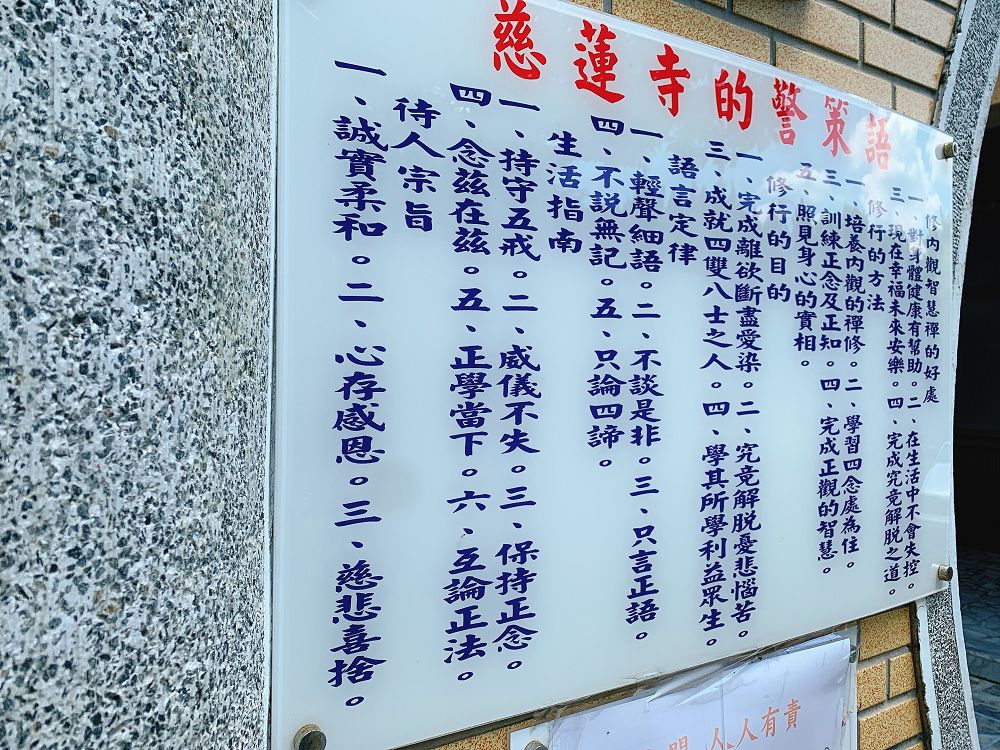 慈蓮寺的警策語
修內觀智慧禪的好處
一、對身體健康有幫助。二、在生活中不會失控。
三、現在幸福未來安樂。四、完成究竟解脫之道。
修行的方法
一、培養內觀的禪修。二、學習四念處為住。
三、訓練正念及正知。四、完成正觀的智慧。
五、照見身心的實相。
修行的目的
一、完成離欲斷盡愛染。二、究竟解脫憂悲惱苦。
三、成就四雙八士之人。四、學其所學利益眾生。
語言定律
一、輕聲細語。二、不談是非。三、只言正語。
四、不說無記。五、只論四諦。
生活指南
一、持守五戒。二、威儀不失。三、保持正念。
四、念茲在茲。五、正學當下。六、互論正法。
待人宗旨
一、誠實柔和。二、心存感恩。三、慈悲喜捨。
人人有責